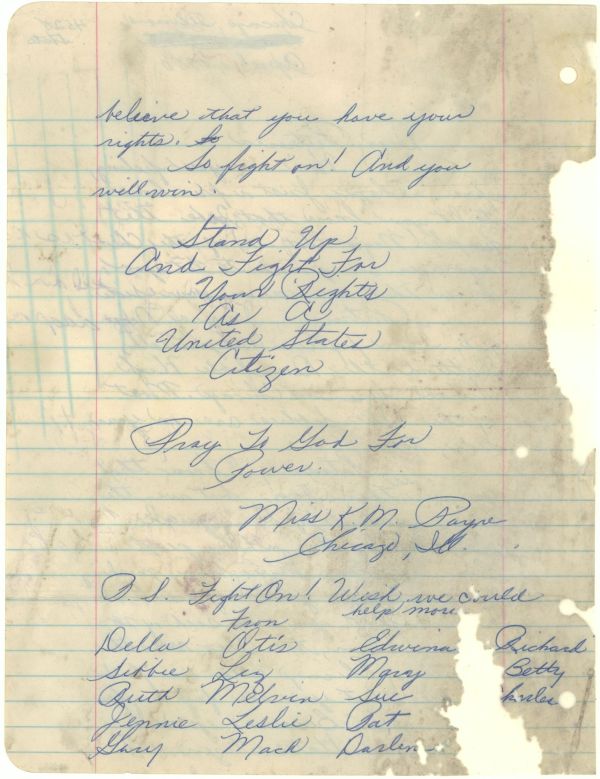 believe that you have your
rights. So
So fight on! And you
will win.
Stand Up
And Fight For
Your Rights
As A
United States
Citizen
Pray To God For
Power.
Miss K. M. Payne
Chicago, Ill.
P. S. Fight On! Wish we could
help more
From
Della Otis Edwina Richard
Sibbie Liz Mary Betty
Ruth Melvin Sue
Jennie Leslie Pat
Gary Mack Darlen